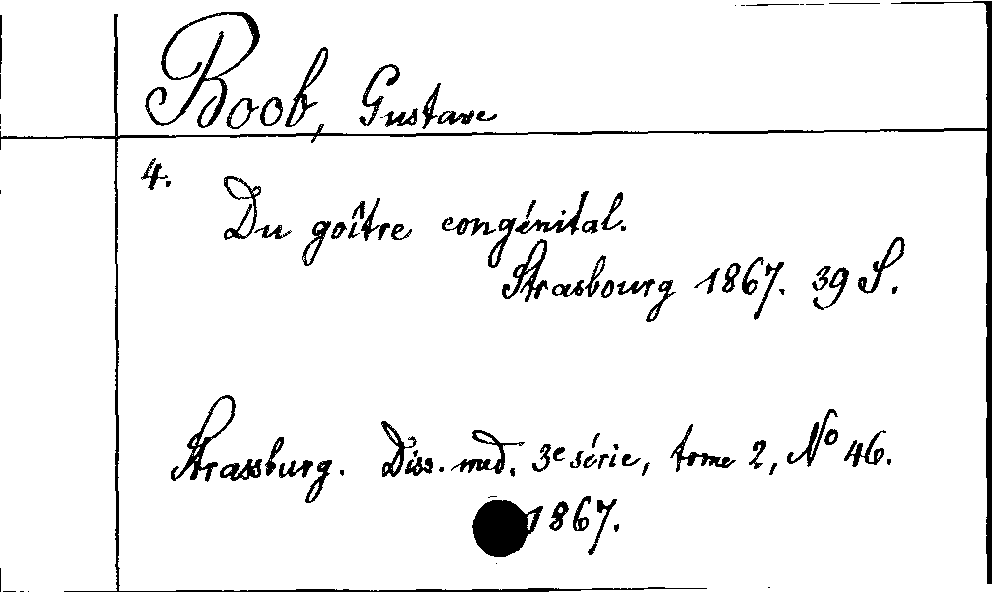 Boob, Gustave
4.
Du goître congénital.
Strasbourg 1867. 39 S.
Strassburg. Diss. med. 3e série, tome 2, No 46.
1867.